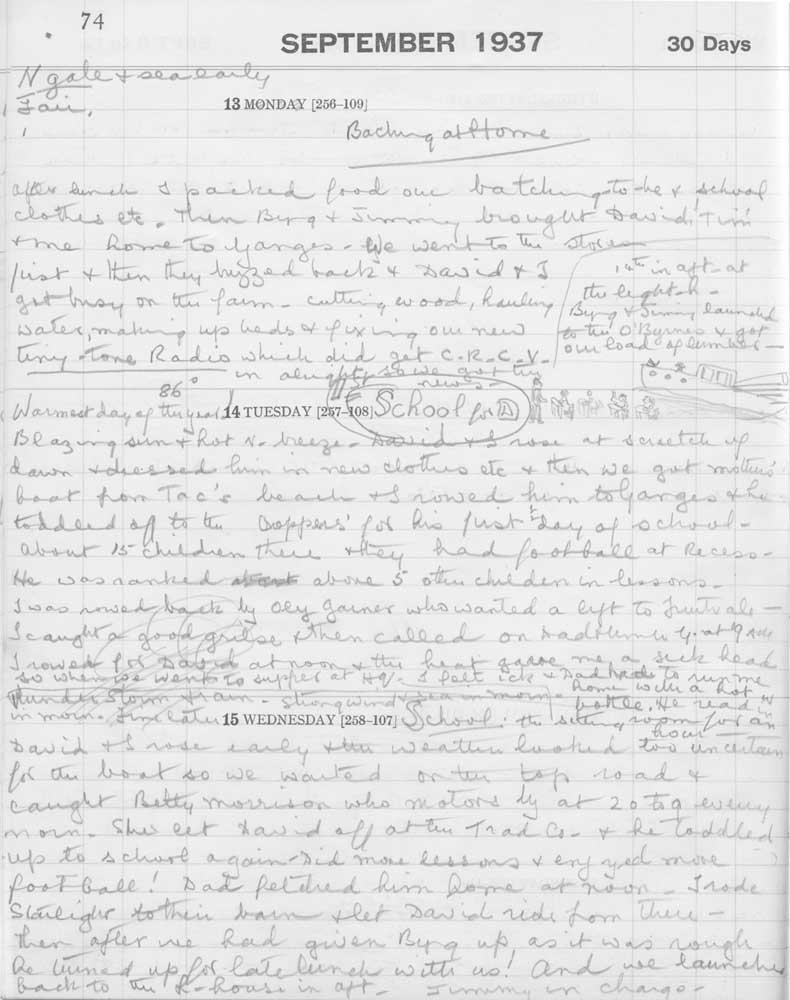 74
SEPTEMBER 1937
30 Days
N gale & sea early
Fair,
13 MONDAY [256–109]
Baching at Home
after lunch I packed food our batching-to-be & school
clothes etc. Then Byrg & Jimmy brought David, Tim
& me home to Ganges – We went to the stores
first & then they buzzed back & David & I
got busy on the farm – cutting wood, hauling
water, making up beds & fixing our new
tiny-tone Radio which did get C.R.C.V.
in alright so we got the
news –
14th in aft – at
the light-h –
Byrg & Jimmy launched
to the O'Byrnes & got
our load of lumber –
86°
Warmest day of the year!
14 TUESDAY [257–108]
1st School for D
Blazing sun & hot N. breeze – David & I rose at scratch of
dawn & dressed him in new clothes etc & then we got mother's
boat from Tac's beach & I rowed him to Ganges & he
toddled off to the Oxspers' for his first ½ day of school –
about 15 children there & they had football at Recess –
He was ranked above 5 other children in lessons –
I was rowed back by Oly Garner who wanted a lift to
I caught a good grilse & then called on Dad at 9
I rowed for David at noon & the heat gave me a sick head
so when we went to supper at HQ – I felt ick & Dad had to run me
home with a hot
bottle. He read in
the sitting room for an
hour –
Thunder Storm & rain – Strong wind & sea in morn –
in morn. Fine later
15 WEDNESDAY [258–107]
School:
David & I rose early & the weather looked too uncertain
for the boat so we waited on the top road &
caught Betty Morrison who motors by at 20 to 9 every
morn – She let David off at the Trad Co – & he toddled
up to school again – Did more lessons & enjoyed more
football! Dad fetched him home at noon – I rode
Starlight to their barn & let David ride from there –
Then after we had given Byrg up as it was rough
he turned up for late lunch with us! And we launched
back to the L-house in aft – Jimmy in charge –